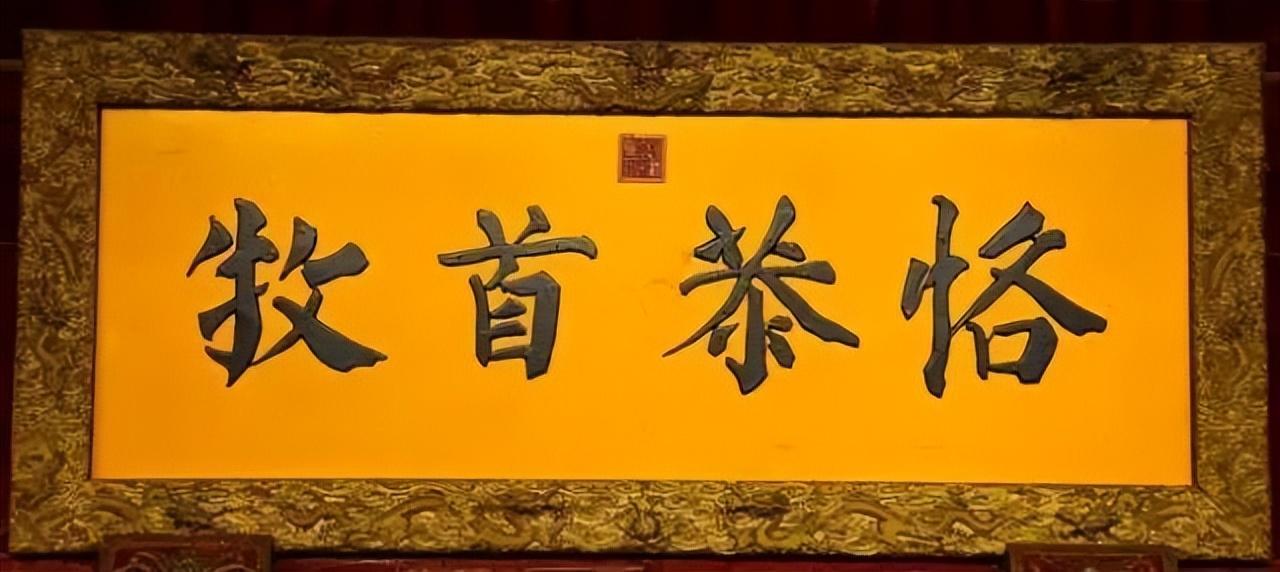 恪恭首牧